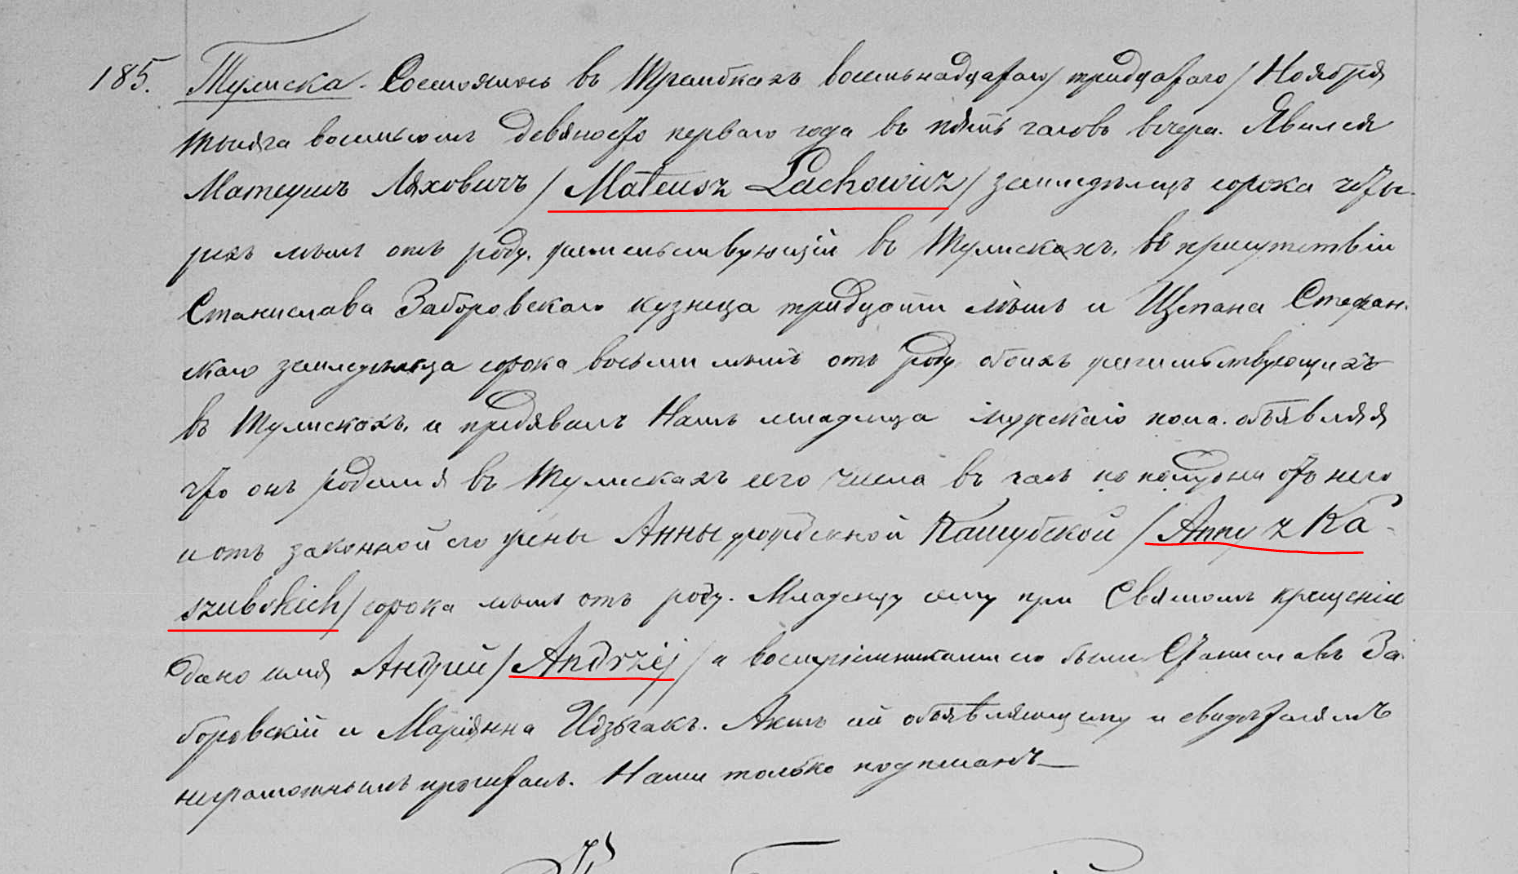 185. Тулиска. Состоялось въ Трамбкахъ восемьнадцатаго /тридцатаго/ Ноября
тысяча восемьсотъ девяносто перваго года въ пять часовъ вечера. Явился
Матеушъ Ляховичъ /Mateusz Lachowicz/ земледѣлецъ сорока четы-
рехъ лѣтъ отъ роду, жительствующій въ Тулискахъ, въ присутствіи
Станислава Заборовскаго кузнеца тридцати лѣтъ и Щепана Стефан-
скаго земледѣльца сорока восьми лѣтъ отъ роду обоихъ жительствующихъ
въ Тулискахъ, и предъявилъ Намъ младенца мужскаго пола, объявляя
что онъ родился въ Тулискахъ сего числа въ часъ по полудни отъ него
и отъ законной его жены Анны урожденной Кашубской /Anny z Ka-
szubskich/ сорока лѣтъ отъ роду. Младенцу сему при Святомъ крещеніи
дано имя Андрей /Andrzej/ а воспріемниками его были Станиславъ За-
боровскій и Маріянна Идзьчакъ. Актъ сей объявляющему и свидѣтелямъ
неграмотнымъ прочитанъ. Нами только подписанъ